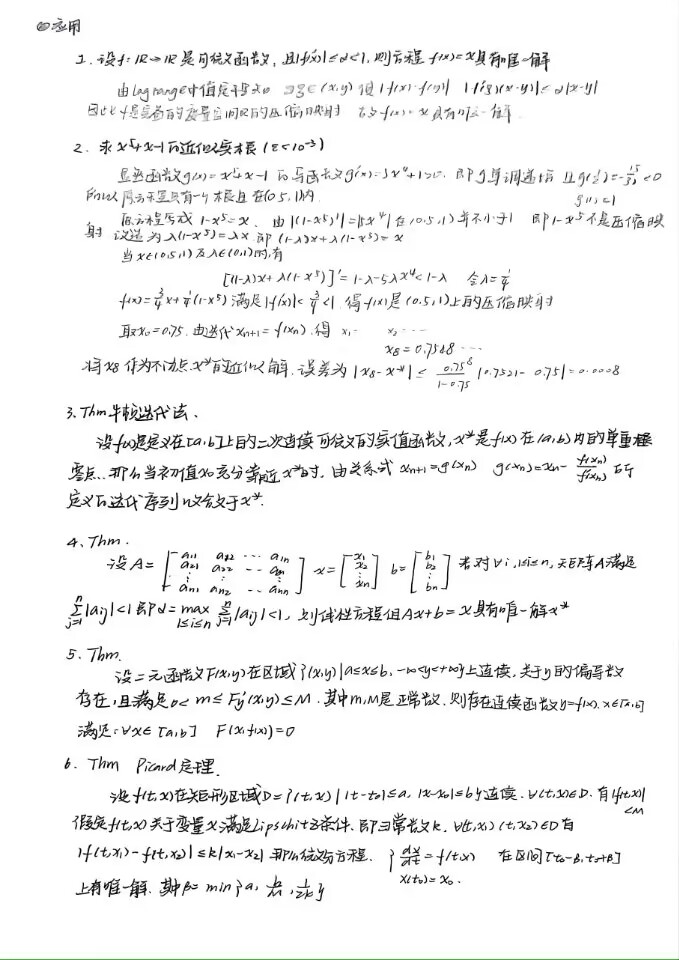 ⑩应用
1. 设f: IR→IR是可微函数, 且|f'(x)|≤α<1, 则方程f(x)=x具有唯一解
由Lagrange中值定理知 ∃ξ∈(x,y) 使|f(x)-f(y)| |f'(ξ)(x-y)|≤α|x-y|
因此f是完备的度量空间R的压缩映射 故f(x)=x具有唯一解
2. 求x⁵+x-1的近似实根(ε<10⁻³)
显然函数g(x)=x⁵+x-1的导函数g'(x)=5x⁴+1>0. 即g单调递增 且g(½)=-15/32<0
所以原方程只有一个根且在(0.5,1)内 g(1)=1
原方程写成 1-x⁵=x. 由|(1-x⁵)'|=|5x⁴|在(0.5,1)并不小于1 即1-x⁵不是压缩映
射 改造为λ(1-x⁵)=λx 即(1-λ)x+λ(1-x⁵)=x
当x∈(0.5,1)及λ∈(0,1)时,有
[(1-λ)x+λ(1-x⁵)]'=1-λ-5λx⁴<1-λ 令λ=¼
f(x)=¾x+¼(1-x⁵)满足|f'(x)|<¾<1. 得f(x)是(0.5,1)上的压缩映射
取x₀=0.75. 由迭代xₙ₊₁=f(xₙ). 得 x₁ x₂ ⋯
x₈=0.7548 ⋯
将x₈作为不动点x*的近似解. 误差为|x₈-x*|≤ 0.75⁸/(1-0.75) |0.7521-0.75|=0.0008
3. Thm牛顿迭代法.
设f(x)是定义在[a,b]上的二次连续可微的实值函数, x*是f(x)在(a,b)内的单重
零点. 那么当初值x₀充分靠近x*时. 由关系式 xₙ₊₁=g(xₙ) g(xₙ)=xₙ-f(xₙ)/f'(xₙ) 所
定义的迭代序列收敛于x*.
4. Thm.
设A=[a₁₁ a₁₂ ⋯ a₁ₙ; a₂₁ a₂₂ ⋯ a₂ₙ; ⋮; aₙ₁ aₙ₂ ⋯ aₙₙ] x=[x₁ x₂ ⋮ xₙ] b=[b₁ b₂ ⋮ bₙ] 若对∀i, 1≤i≤n, 矩阵A满足
Σⱼ₌₁ⁿ|aᵢⱼ|<1 即α=max_{1≤i≤n} Σⱼ₌₁ⁿ|aᵢⱼ|<1, 则线性方程组Ax+b=x具有唯一解x*
5. Thm.
设二元函数F(x,y)在区域{(x,y)|a≤x≤b, -∞<y<+∞}上连续, 关于y的偏导数
存在, 且满足0<m≤F'y(x,y)≤M. 其中m,M是正常数. 则存在连续函数y=f(x). x∈[a,b]
满足: ∀x∈[a,b] F(x,f(x))=0
6. Thm Picard定理.
设f(t,x)在矩形区域D={(t,x)| |t-t₀|≤a, |x-x₀|≤b}连续. ∀(t,x)∈D. 有|f(t,x)|<M
假定f(t,x)关于变量x满足Lipschitz条件. 即∃常数k. ∀(t,x₁)(t,x₂)∈D有
|f(t,x₁)-f(t,x₂)|≤k|x₁-x₂| 那么微分方程. {dx/dt=f(t,x) 在区间[t₀-β,t₀+β]
x(t₀)=x₀.
上有唯一解. 其中β=min{a, b/M, 1/2k}